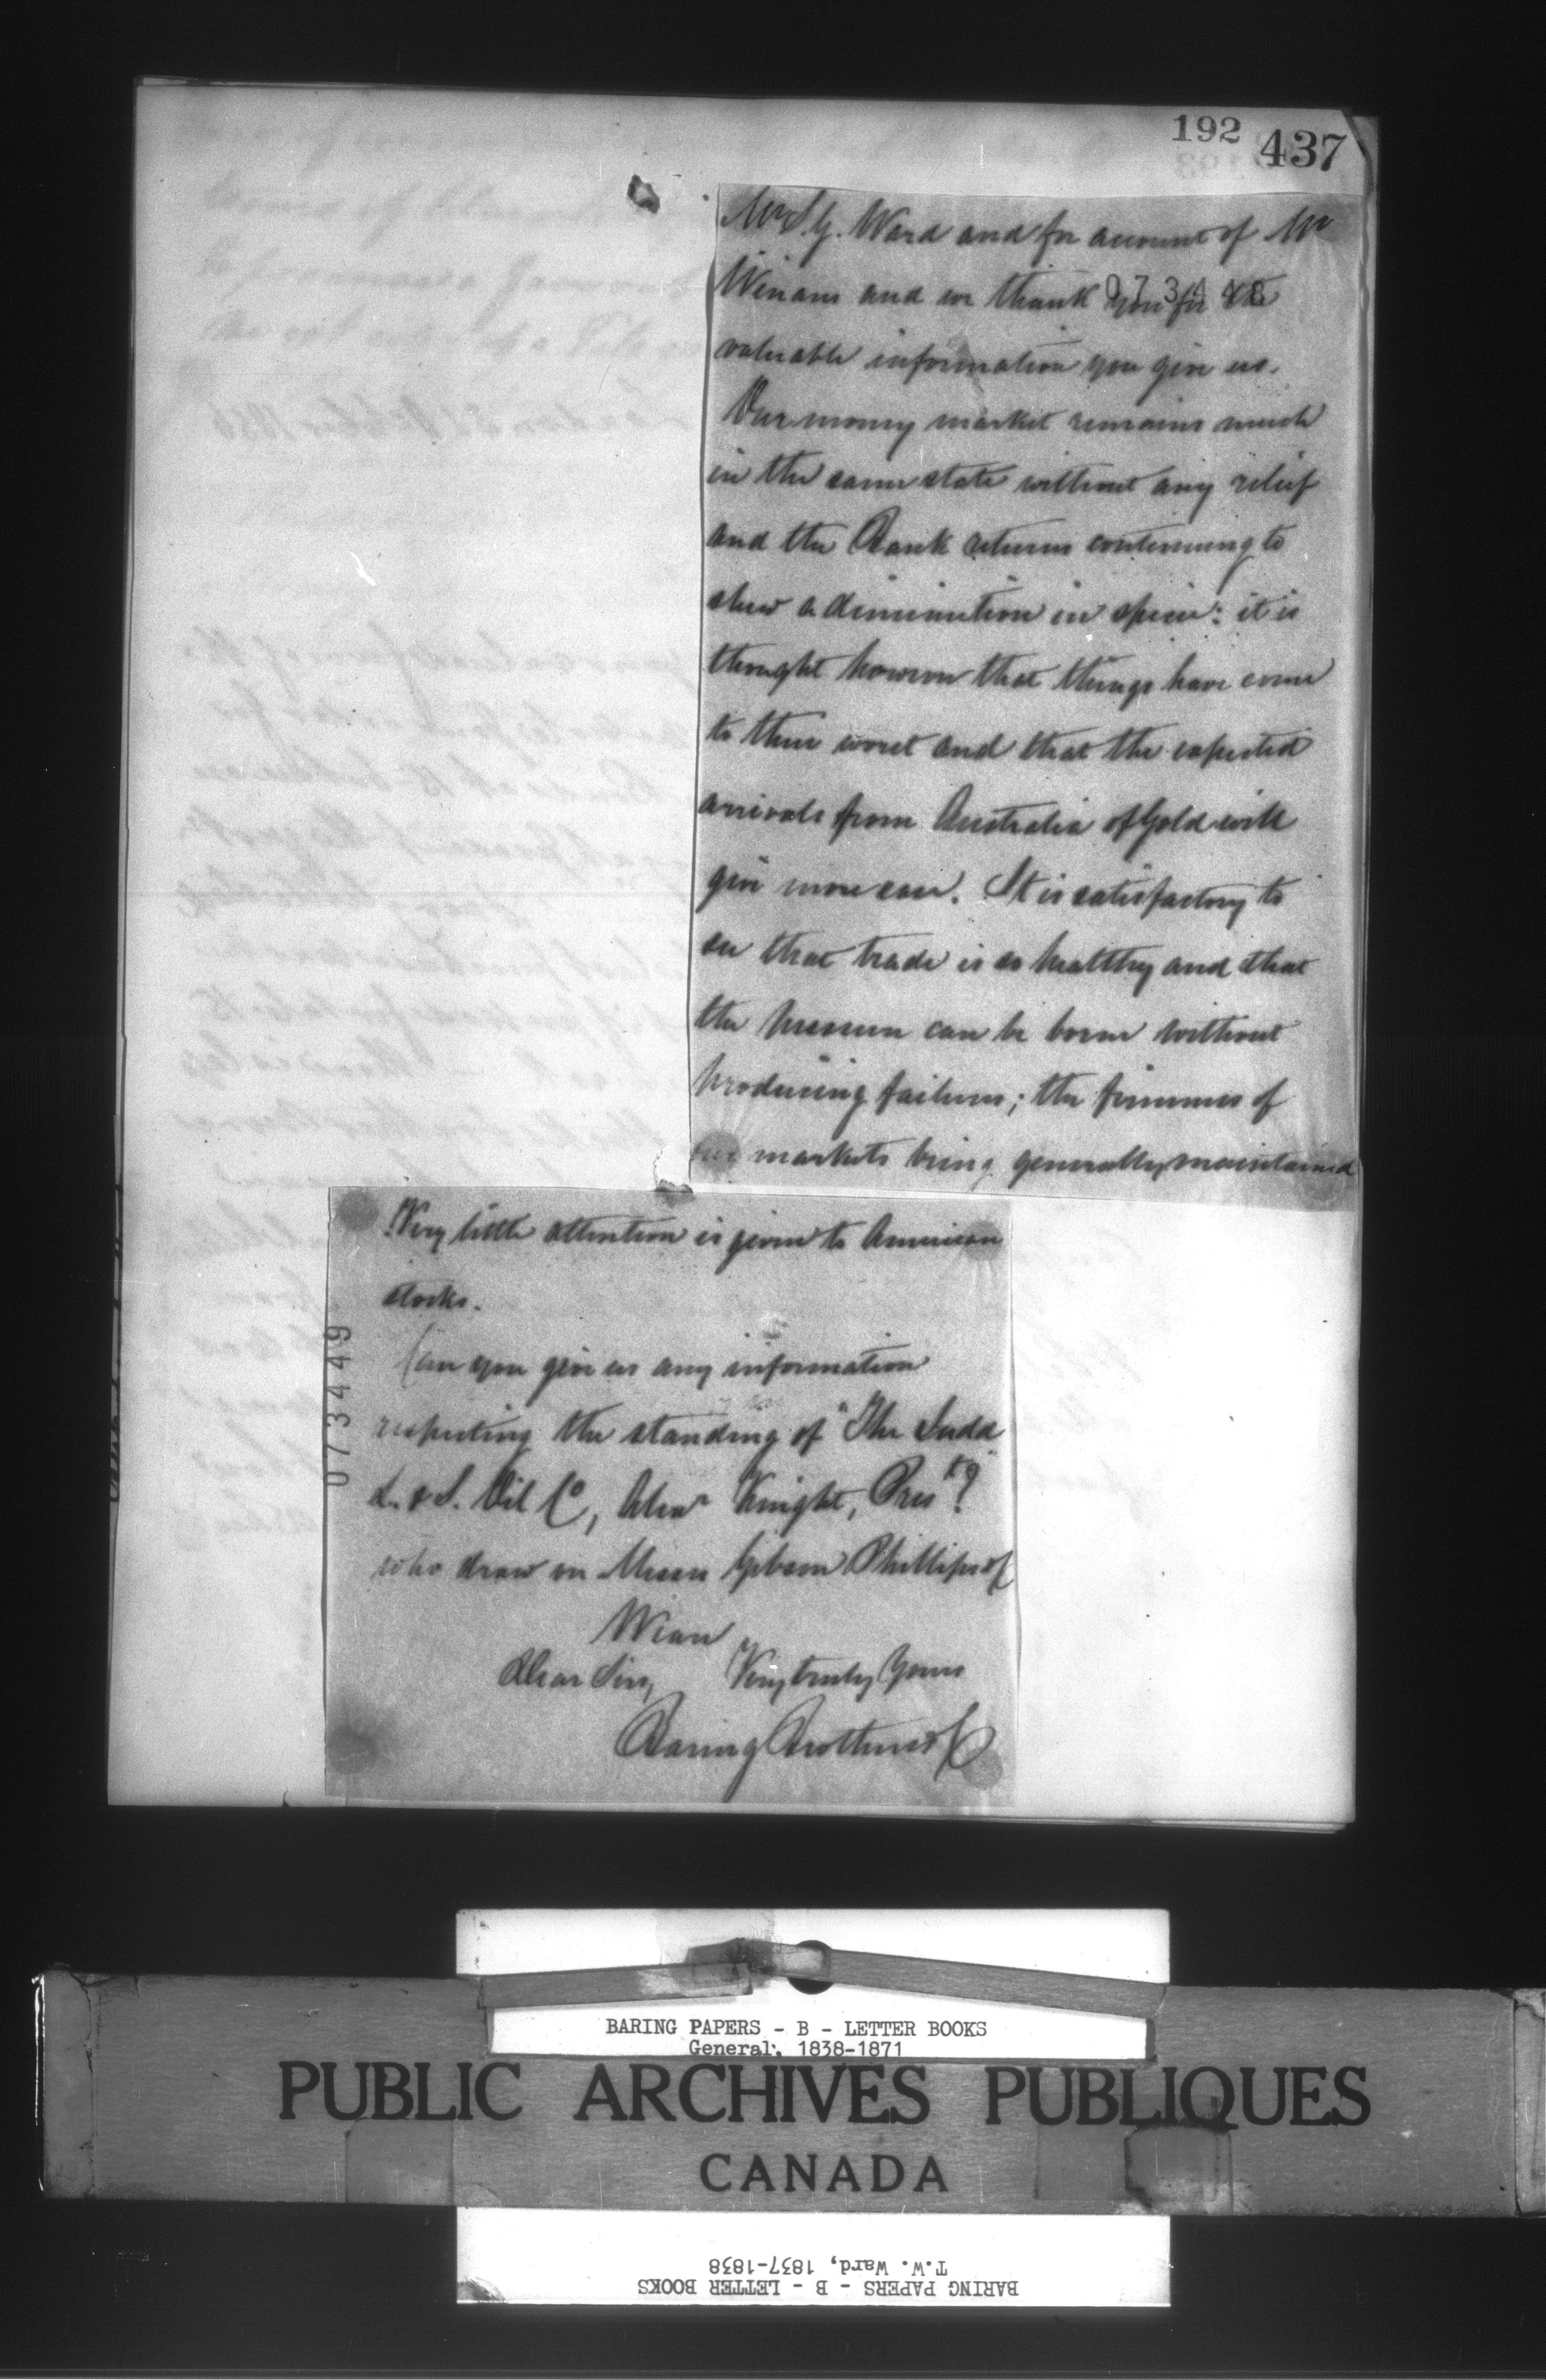 192 437
Mr S. G. Ward and for account of Mr
Winans and we thank you for the
073448
valuable information you give us.
Our money market remains much
in the same state without any relief
and the Bank returns continuing to
shew a diminution in specie: it is
thought however that things have come
to their worst and that the expected
arrivals from Australia of Gold will
give more ease. It is satisfactory to
see that trade is so healthy and that
the pressure can be borne without
producing failures; the firmness of
our markets being generally maintained
Very little attention is given to American
stocks.
Can you give us any information
073449
respecting the standing of "The Judd
L. & S. Oil Co, Alexr Knight, Prest"?
who draw on Messrs Gibson Phillips of
We are
Dear Sir, Very truly Yours
Baring Brothers & Co
BARING PAPERS - B - LETTER BOOKS
General, 1838-1871
PUBLIC ARCHIVES PUBLIQUES
CANADA
BARING PAPERS - B - LETTER BOOKS
T.W. Ward, 1837-1838